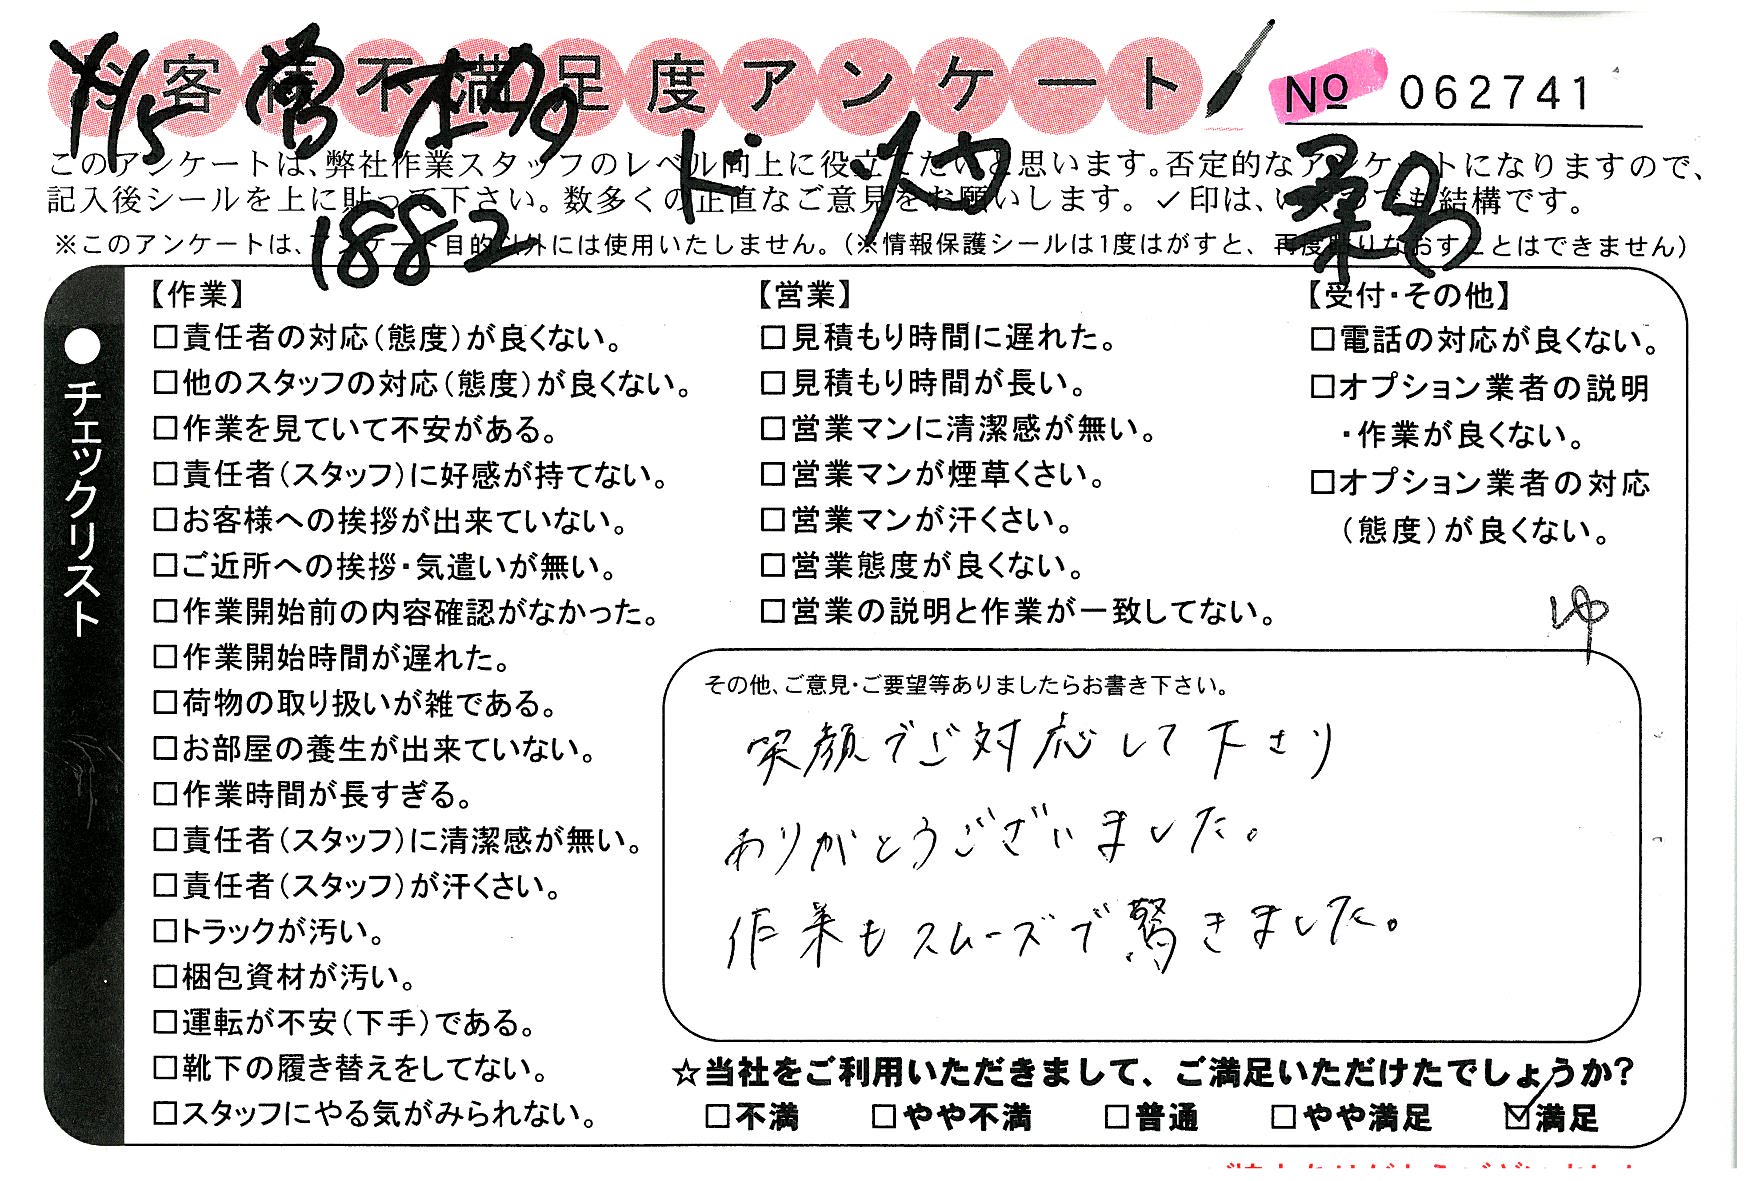 お客様不満足度アンケート
No 062741
このアンケートは、弊社作業スタッフのレベル向上に役立てたいと思います。否定的なアンケートになりますので、
記入後シールを上に貼って下さい。数多くの正直なご意見をお願いします。✓印は、いくつでも結構です。
※このアンケートは、アンケート目的以外には使用いたしません。(※情報保護シールは1度はがすと、再度貼りなおすことはできません)
1882
桑名
●チェックリスト
【作業】
□責任者の対応(態度)が良くない。
□他のスタッフの対応(態度)が良くない。
□作業を見ていて不安がある。
□責任者(スタッフ)に好感が持てない。
□お客様への挨拶が出来ていない。
□ご近所への挨拶・気遣いが無い。
□作業開始前の内容確認がなかった。
□作業開始時間が遅れた。
□荷物の取り扱いが雑である。
□お部屋の養生が出来ていない。
□作業時間が長すぎる。
□責任者(スタッフ)に清潔感が無い。
□責任者(スタッフ)が汗くさい。
□トラックが汚い。
□梱包資材が汚い。
□運転が不安(下手)である。
□靴下の履き替えをしてない。
□スタッフにやる気がみられない。
【営業】
□見積もり時間に遅れた。
□見積もり時間が長い。
□営業マンに清潔感が無い。
□営業マンが煙草くさい。
□営業マンが汗くさい。
□営業態度が良くない。
□営業の説明と作業が一致してない。
【受付・その他】
□電話の対応が良くない。
□オプション業者の説明
・作業が良くない。
□オプション業者の対応
(態度)が良くない。
ゆ
その他、ご意見・ご要望等ありましたらお書き下さい。
笑顔でご対応して下さり
ありがとうございました。
作業もスムーズで驚きました。
☆当社をご利用いただきまして、ご満足いただけたでしょうか?
□不満 □やや不満 □普通 □やや満足 ☑満足